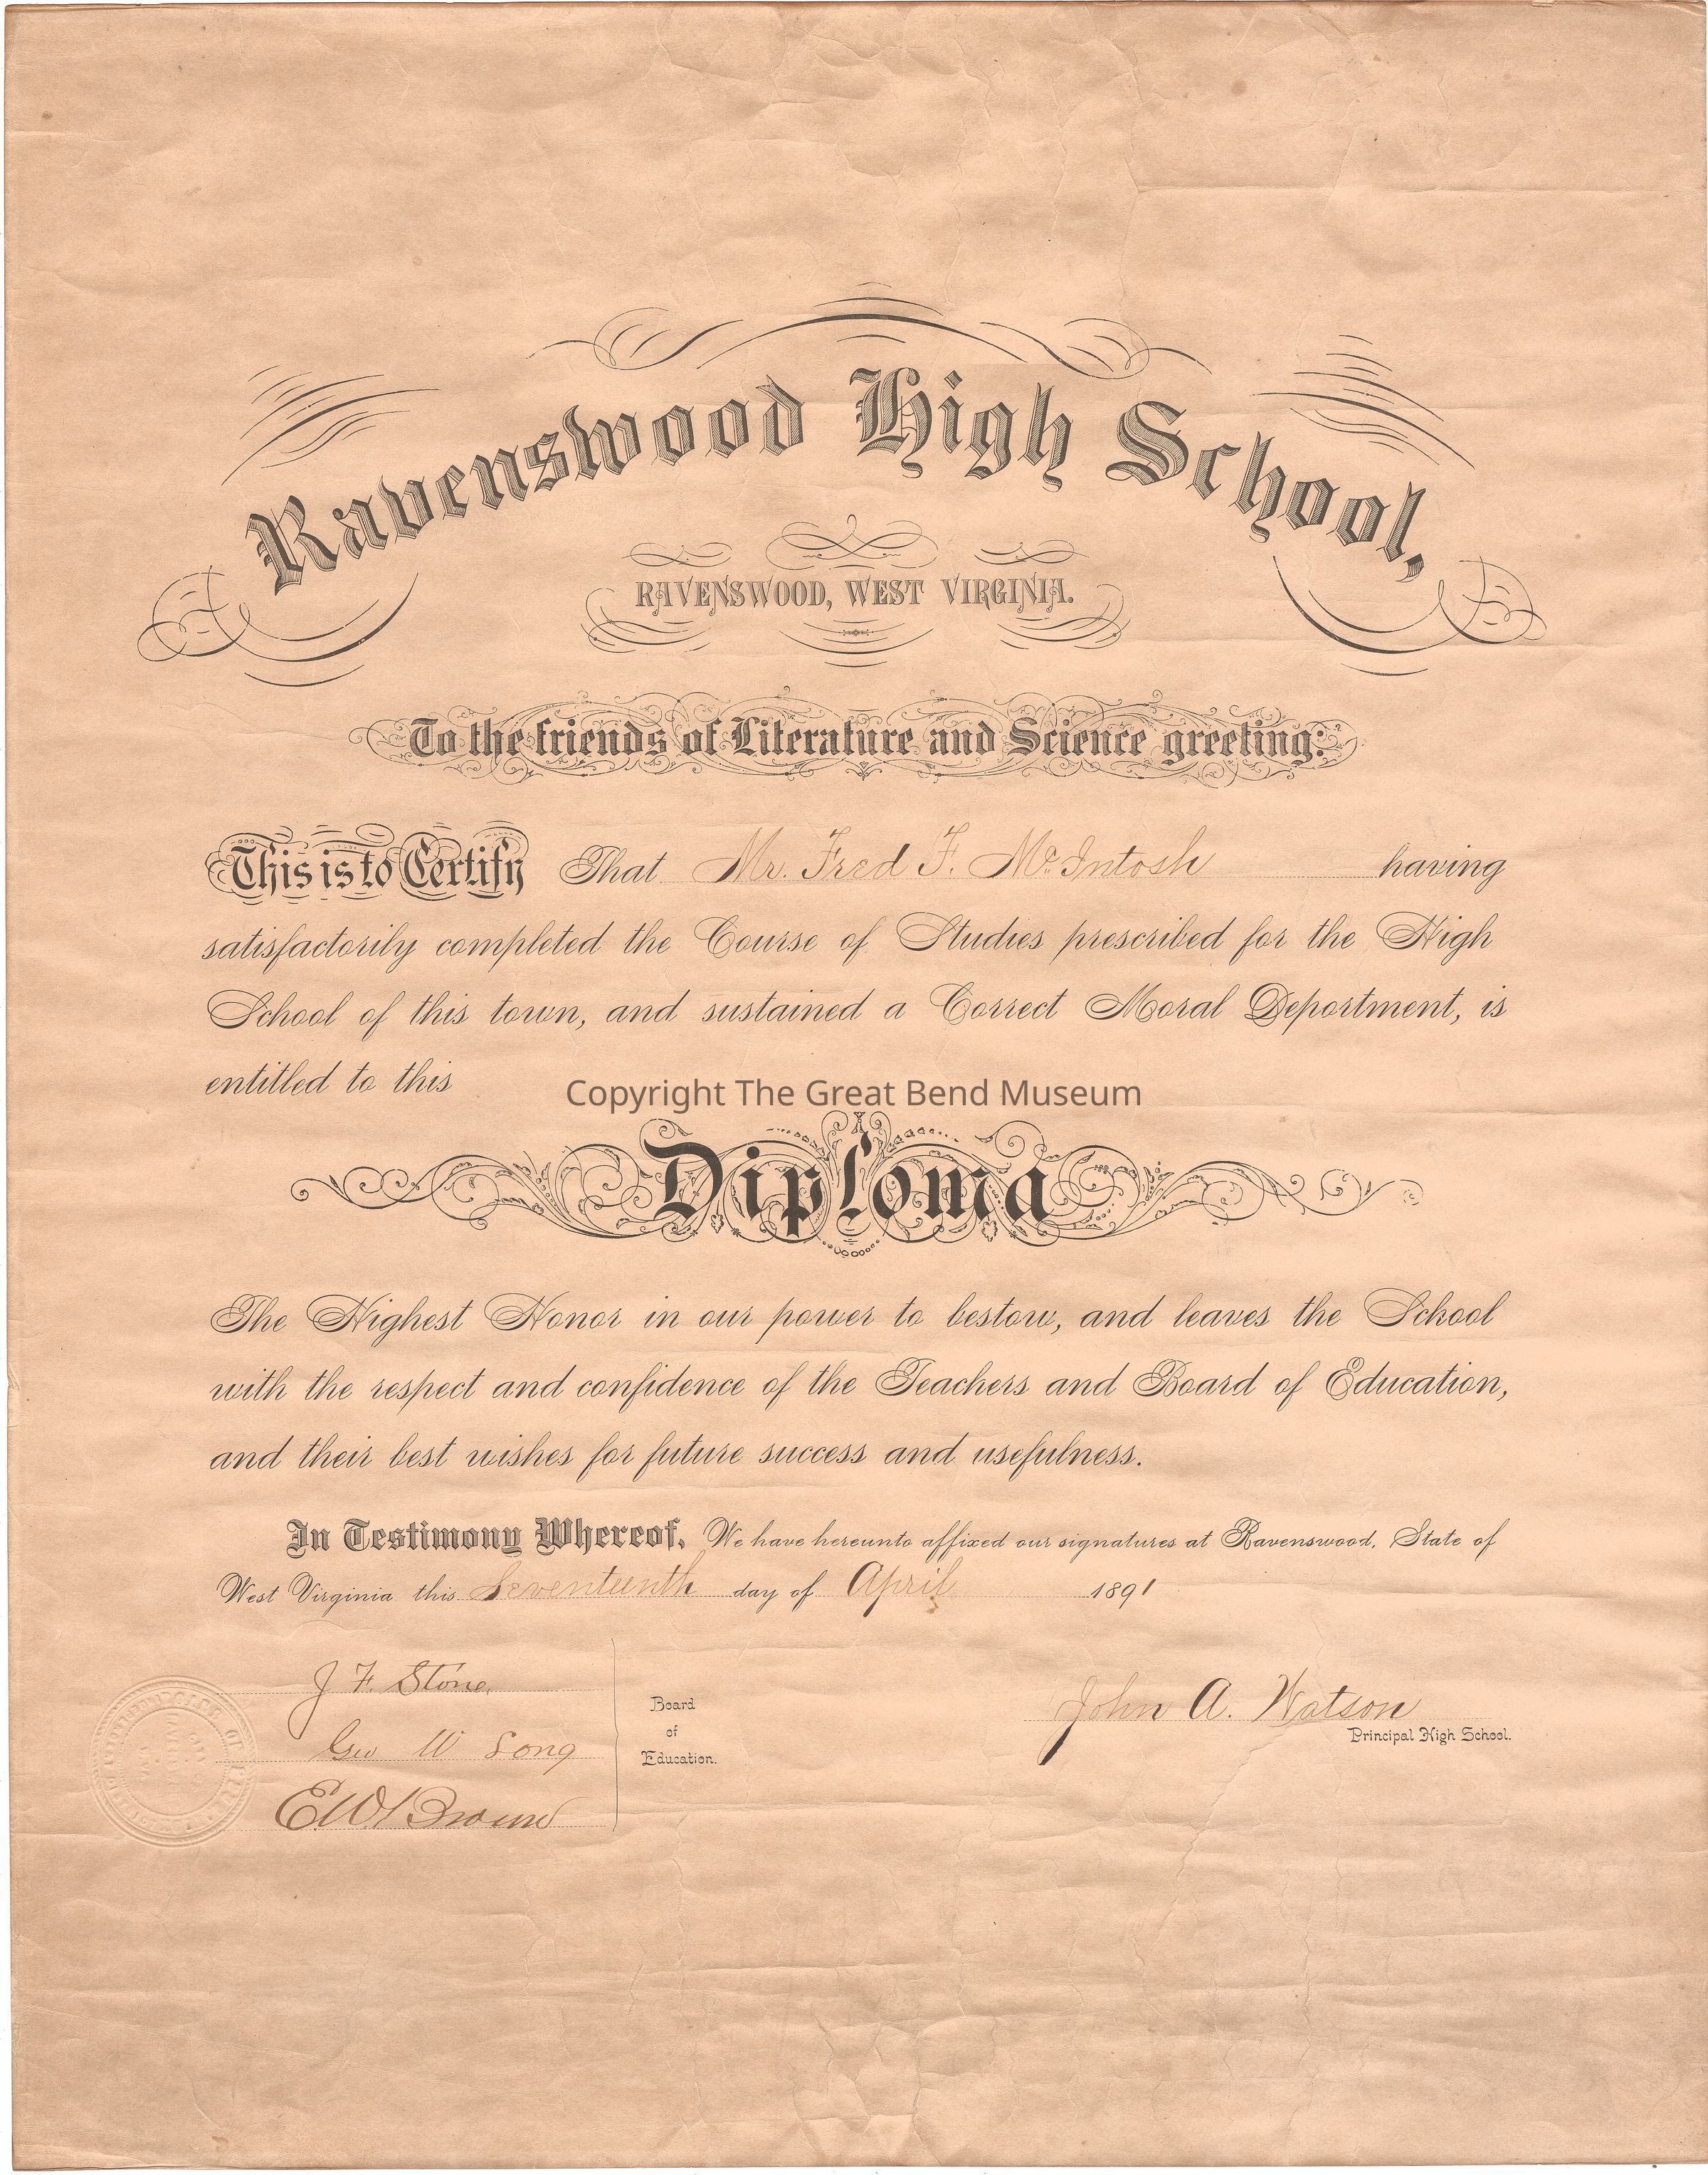 Ravenswood High School,
RAVENSWOOD, WEST VIRGINIA.
To the friends of Literature and Science greeting:
This is to Certify That Mr. Fred F. McIntosh having
satisfactorily completed the Course of Studies prescribed for the High
School of this town, and sustained a Correct Moral Deportment, is
entitled to this
Copyright The Great Bend Museum
Diploma
The Highest Honor in our power to bestow, and leaves the School
with the respect and confidence of the Teachers and Board of Education,
and their best wishes for future success and usefulness.
In Testimony Whereof, We have hereunto affixed our signatures at Ravenswood, State of
West Virginia this Seventeenth day of April 1891
J F. Stone
Geo W Long
E W Brown
Board
of
Education.
John A. Watson
Principal High School.